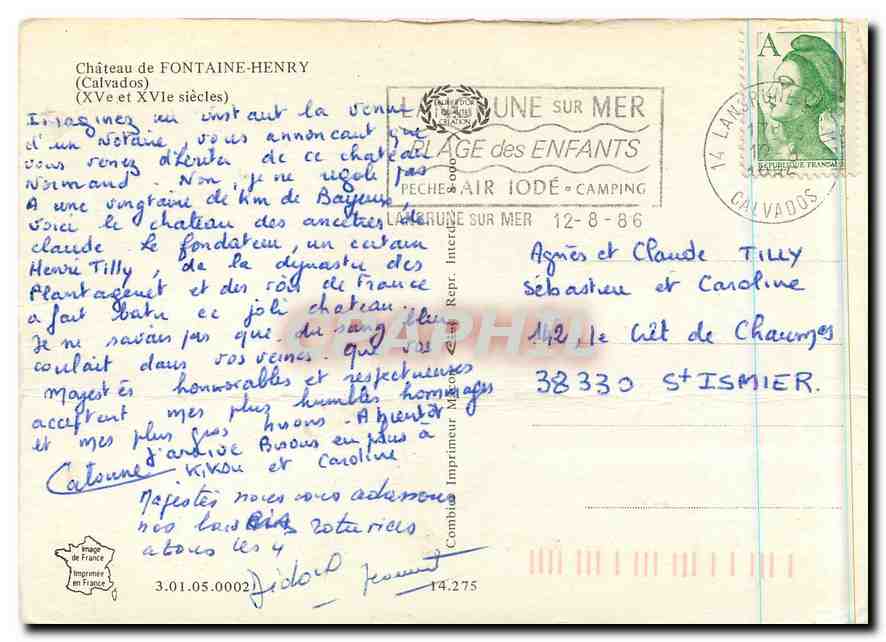 Château de FONTAINE-HENRY
(Calvados)
(XVe et XVIe siècles)
Imaginez un instant la venue
d'un Notaire, vous annonçant que
vous venez d'hériter de ce chateau
Normand. Non, je ne rigole pas
A une vingtaine de km de Bayeux,
voici le chateau des ancêtres de
claude. Le fondateur, un certain
Henri Tilly, de la dynastie des
Plantagenet et des rois de France
a fait batir ce joli chateau.
Je ne savais pas que du sang bleu
coulait dans vos veines. Que vos
Majestés honnorables et respectueuses
acceptent mes plus humbles hommages
et mes plus gros bisous. A bientôt
Bisous en plus à
Kikou et Caroline
Majestés nous vous adressons
nos roturiers
a tous les 4
LANGRUNE SUR MER
PLAGE des ENFANTS
PECHE AIR IODÉ CAMPING
LANGRUNE SUR MER 12-8-86
LAURIER D'OR
CREATION
A
REPUBLIQUE FRANCAISE
14 LANGRUNE
CALVADOS
Agnès et Claude TILLY
Sébastien et Caroline
142, le Crêt de Chaumes
38330 St ISMIER.
CPAPHIL
Combier Imprimeur Mâcon Repr. Interd.
Image
de France
Imprimée
en France
3.01.05.0002
14.275